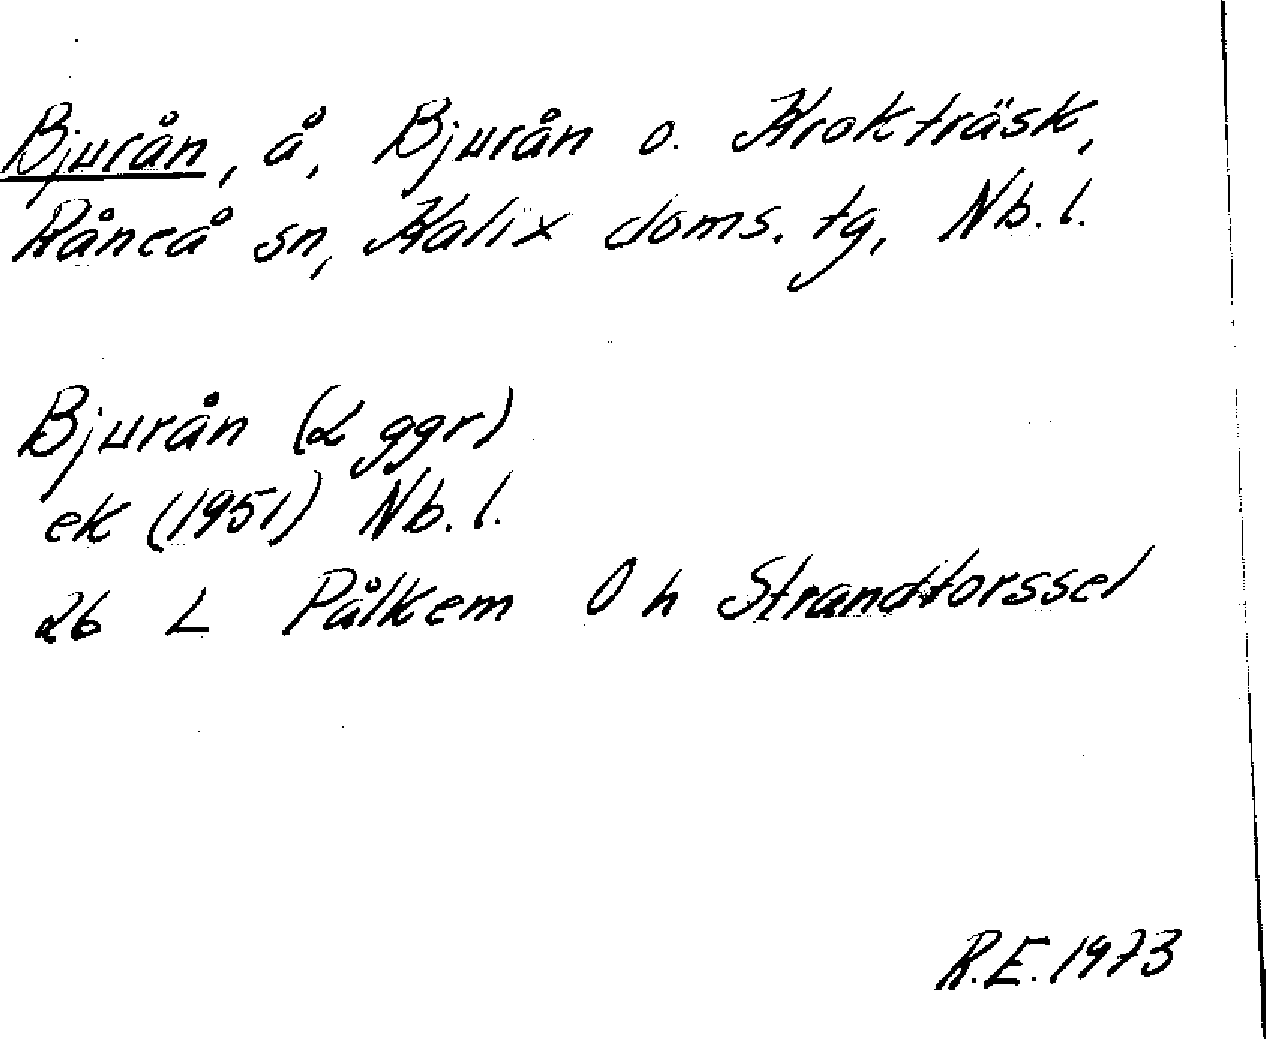 Bjurån, å, Bjurån o. Krokträsk,
Råneå sn, Kalix doms. tg, Nb. l.
Bjurån (2 ggr)
ek (1951) Nb. l.
26 L Pålkem O h Strandtorssel
R.E. 1973